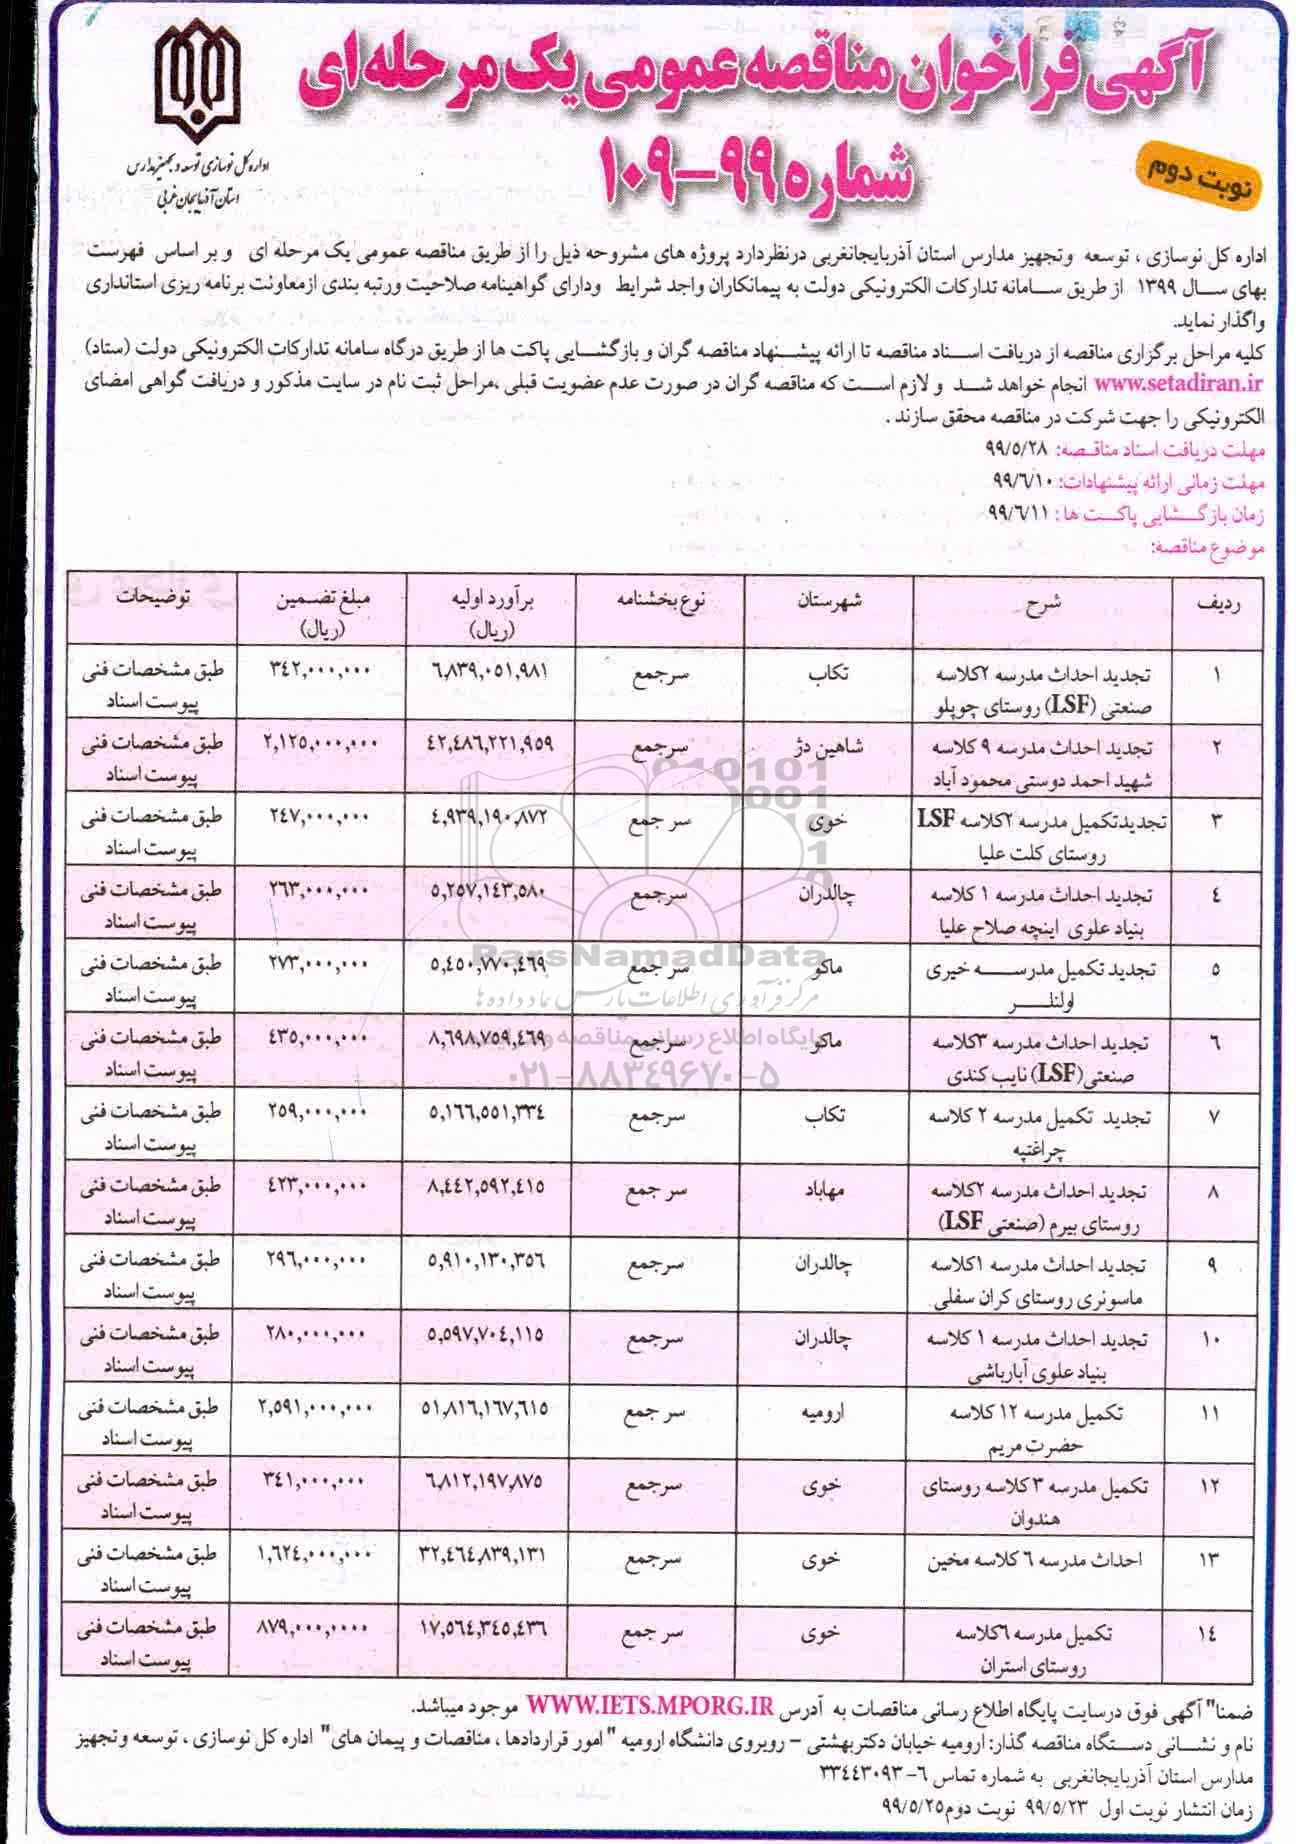 آگهی فراخوان مناقصه عمومی یک مرحله ای
شماره ۹۹-۱۰۹
نوبت دوم
اداره کل نوسازی توسعه و تجهیز مدارس
استان آذربایجان غربی
اداره کل نوسازی ، توسعه وتجهیز مدارس استان آذربایجانغربی درنظردارد پروژه های مشروحه ذیل را از طریق مناقصه عمومی یک مرحله ای و بر اساس فهرست
بهای سال ۱۳۹۹ از طریق سامانه تدارکات الکترونیکی دولت به پیمانکاران واجد شرایط ودارای گواهینامه صلاحیت ورتبه بندی ازمعاونت برنامه ریزی استانداری
واگذار نماید.
کلیه مراحل برگزاری مناقصه از دریافت اسناد مناقصه تا ارائه پیشنهاد مناقصه گران و بازگشایی پاکت ها از طریق درگاه سامانه تدارکات الکترونیکی دولت (ستاد)
www.setadiran.ir انجام خواهد شد و لازم است که مناقصه گران در صورت عدم عضویت قبلی ،مراحل ثبت نام در سایت مذکور و دریافت گواهی امضای
الکترونیکی را جهت شرکت در مناقصه محقق سازند .
مهلت دریافت اسناد مناقصه: ۹۹/۵/۲۸
مهلت زمانی ارائه پیشنهادات: ۹۹/٦/۱۰
زمان بازگشایی پاکت ها : ۹۹/٦/۱۱
موضوع مناقصه:
ردیف شرح شهرستان نوع بخشنامه برآورد اولیه مبلغ تضمین توضیحات
(ریال) (ریال)
۱ تجدید احداث مدرسه ۲کلاسه تکاب سرجمع ٦,۸۳۹,۰۵۱,۹۸۱ ۳٤۲,۰۰۰,۰۰۰ طبق مشخصات فنی
صنعتی (LSF) روستای چوپلو پیوست اسناد
۲ تجدید احداث مدرسه ۹ کلاسه شاهین دژ سرجمع ٤۲,٤۸٦,۲۲۱,۹۵۹ ۲,۱۲۵,۰۰۰,۰۰۰ طبق مشخصات فنی
شهید احمد دوستی محمود آباد پیوست اسناد
۳ تجدیدتکمیل مدرسه ۲کلاسه LSF خوی سر جمع ٤,۹۳۹,۱۹۰,۸۷۲ ۲٤۷,۰۰۰,۰۰۰ طبق مشخصات فنی
روستای کلت علیا پیوست اسناد
٤ تجدید احداث مدرسه ۱ کلاسه چالدران سرجمع ۵,۲۵۷,۱٤۳,۵۸۰ ۲٦۳,۰۰۰,۰۰۰ طبق مشخصات فنی
بنیاد علوی اینچه صلاح علیا پیوست اسناد
۵ تجدید تکمیل مدرسه خیری ماکو سر جمع ۵,٤۵۰,۷۷۰,٤٦۹ ۲۷۳,۰۰۰,۰۰۰ طبق مشخصات فنی
اولنلر پیوست اسناد
٦ تجدید احداث مدرسه ۳کلاسه ماکو سرجمع ۸,٦۹۸,۷۵۹,٤٦۹ ٤۳۵,۰۰۰,۰۰۰ طبق مشخصات فنی
صنعتی(LSF) نایب کندی پیوست اسناد
۷ تجدید تکمیل مدرسه ۲ کلاسه تکاب سرجمع ۵,۱٦٦,۵۵۱,۳۳٤ ۲۵۹,۰۰۰,۰۰۰ طبق مشخصات فنی
چراغتپه پیوست اسناد
۸ تجدید احداث مدرسه ۲کلاسه مهاباد سر جمع ۸,٤٤۲,۵۹۲,٤۱۵ ٤۲۳,۰۰۰,۰۰۰ طبق مشخصات فنی
روستای بیرم (صنعتی LSF) پیوست اسناد
۹ تجدید احداث مدرسه ۱کلاسه چالدران سرجمع ۵,۹۱۰,۱۳۰,۳۵٦ ۲۹٦,۰۰۰,۰۰۰ طبق مشخصات فنی
ماسونری روستای کران سفلی پیوست اسناد
۱۰ تجدید احداث مدرسه ۱ کلاسه چالدران سرجمع ۵,۵۹۷,۷۰٤,۱۱۵ ۲۸۰,۰۰۰,۰۰۰ طبق مشخصات فنی
بنیاد علوی آبارباشی پیوست اسناد
۱۱ تکمیل مدرسه ۱۲ کلاسه ارومیه سر جمع ۵۱,۸۱٦,۱٦۷,٦۱۵ ۲,۵۹۱,۰۰۰,۰۰۰ طبق مشخصات فنی
حضرت مریم پیوست اسناد
۱۲ تکمیل مدرسه ۳ کلاسه روستای خوی سرجمع ٦,۸۱۲,۱۹۷,۸۷۵ ۳٤۱,۰۰۰,۰۰۰ طبق مشخصات فنی
هندوان پیوست اسناد
۱۳ احداث مدرسه ٦ کلاسه مخین خوی سرجمع ۳۲,٤٦٤,۸۳۹,۱۳۱ ۱,٦۲٤,۰۰۰,۰۰۰ طبق مشخصات فنی
پیوست اسناد
۱٤ تکمیل مدرسه ٦کلاسه خوی سر جمع ۱۷,۵٦٤,۳٤۵,٤۳٦ ۸۷۹,۰۰۰,۰۰۰۰ طبق مشخصات فنی
روستای استران پیوست اسناد
010101
0001
ParsNamadData
مرکز فرآوری اطلاعات پارس نماد داده ها
پایگاه اطلاع رسانی مناقصه و
۰۲۱-۸۸۳۴۹۶۷۰-۵
ضمنا" آگهی فوق درسایت پایگاه اطلاع رسانی مناقصات به آدرس WWW.IETS.MPORG.IR موجود میباشد.
نام و نشانی دستگاه مناقصه گذار: ارومیه خیابان دکتربهشتی – روبروی دانشگاه ارومیه " امور قراردادها ، مناقصات و پیمان های" اداره کل نوسازی ، توسعه وتجهیز
مدارس استان آذربایجانغربی به شماره تماس ٦-۳۳٤٤۳۰۹۳
زمان انتشار نوبت اول ۹۹/۵/۲۳ نوبت دوم۹۹/۵/۲۵